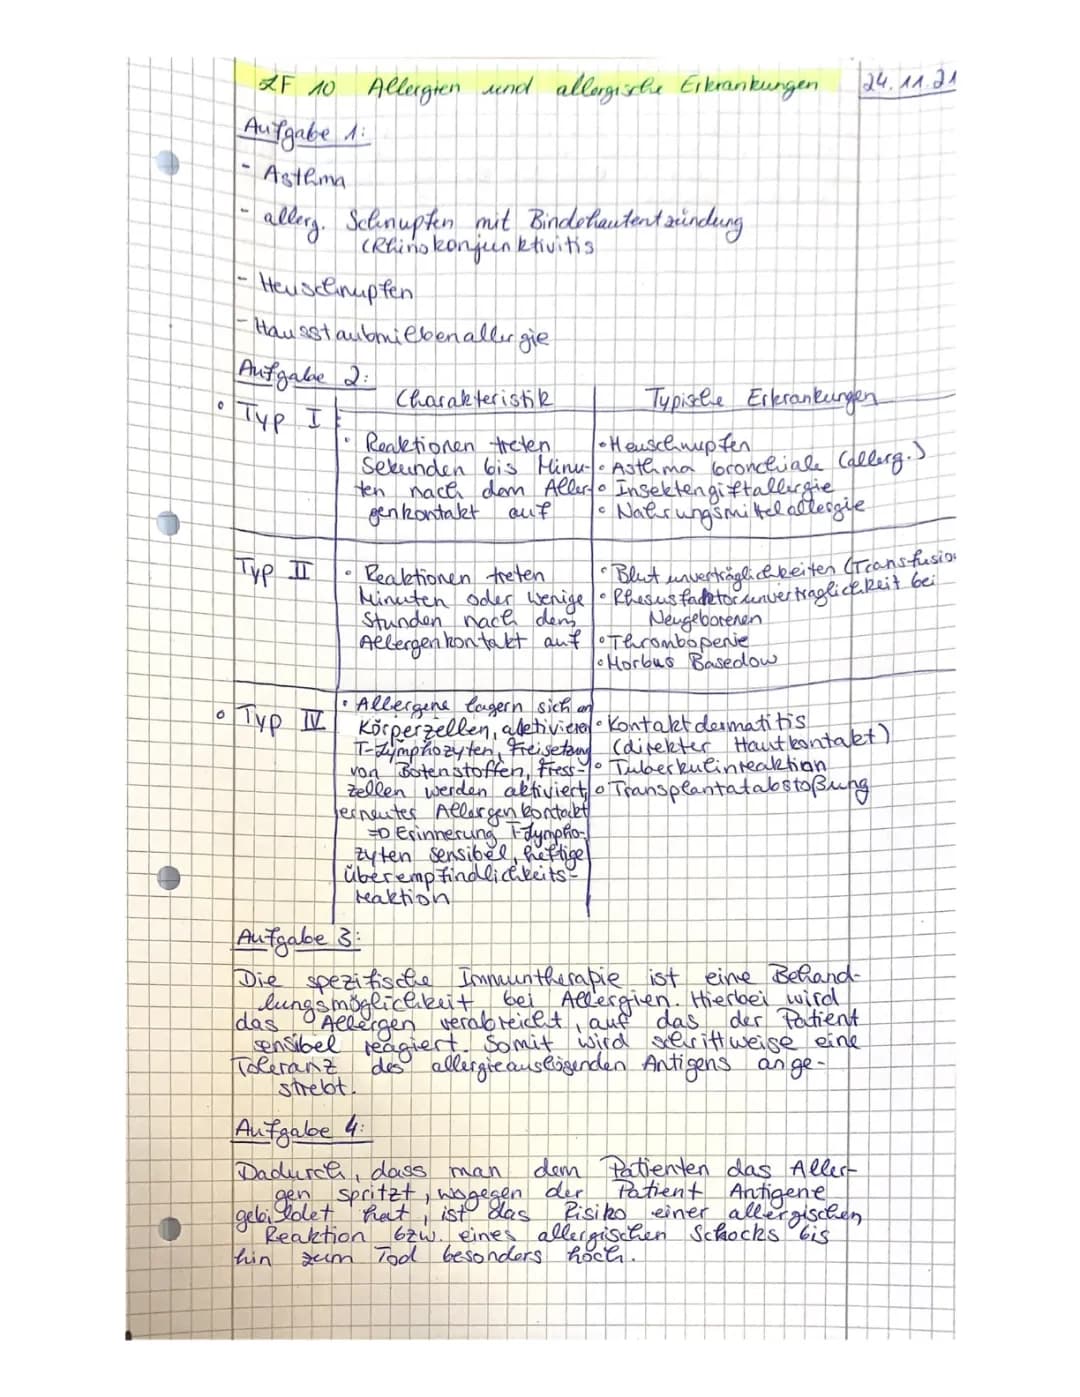 LF 10 Allergien und allergische Erkrankungen 24.11.21
Aufgabe 1:
- Asthma
- allerg. Schnupfen mit Bindehautentzündung
(Rhinokonjunktivitis
- Heuschnupfen
- Hausstaubmilbenallergie
Aufgabe 2:
Charakteristik
Typische Erkrankungen
• Typ I
• Reaktionen treten
Sekunden bis Minu-
ten nach dem Aller-
genkontakt auf
• Heuschnupfen
• Asthma bronchiale (allerg.)
• Insektengiftallergie
• Nahrungsmittelallergie
Typ II
• Reaktionen treten
Minuten oder wenige
Stunden nach dem
Allergenkontakt auf
• Blutunverträglichkeiten (Transfusion
• Rhesusfaktorunverträglichkeit bei
Neugeborenen
• Thrombopenie
• Morbus Basedow
• Typ IV
• Allergene lagern sich an
Körperzellen, aktivieren
T-Lymphozyten, Freisetzung
von Botenstoffen, Fress-
zellen werden aktiviert,
erneuter Allergenkontakt
=> Erinnerung T-Lympho-
zyten sensibel, heftige
überempfindlichkeits-
reaktion
• Kontaktdermatitis
(direkter Hautkontakt)
• Tuberkulinreaktion
• Transplantatabstoßung
Aufgabe 3:
Die spezifische Immuntherapie ist eine Behand-
lungsmöglichkeit bei Allergien. Hierbei wird
das Allergen verabreicht, auf das der Patient
sensibel reagiert. Somit wird schrittweise eine
Toleranz des allergieauslösenden Antigens ange-
strebt.
Aufgabe 4:
Dadurch, dass man dem Patienten das Aller-
gen spritzt, wogegen der Patient Antigene
gebildet hat, ist das Risiko einer allergischen
Reaktion bzw. eines allergischen Schocks bis
hin zum Tod besonders hoch.